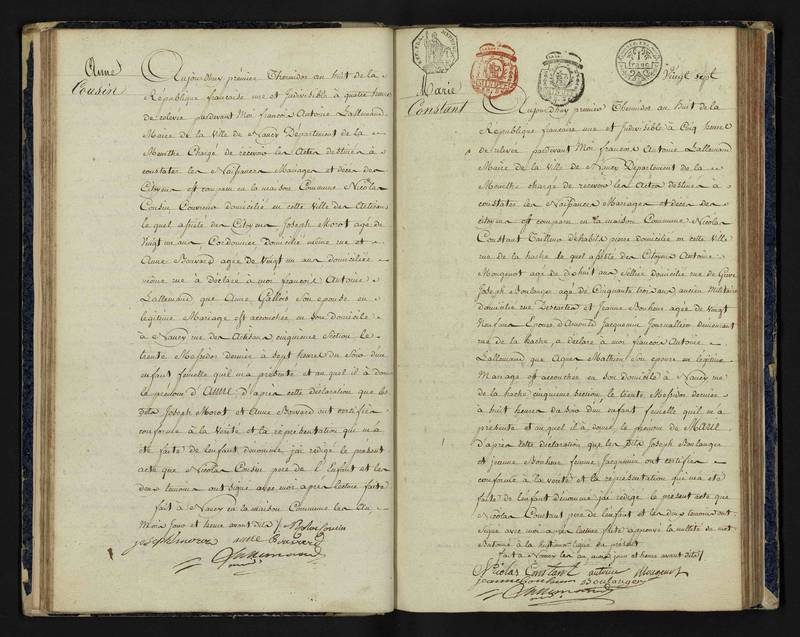 Anne
Cousin
Aujourdhuy premier Thermidor an huit de la
République francaise une et Indivisible à quatre heures
de relevée pardevant Moi francois Antoine Lallemand
Maire de la Ville de Nancy Departement de la
Meurthe Chargé de recevoir les Actes destinés à
constater les Naissances Mariages et décès des
Citoyens est comparu en la maison Commune Nicolas
Cousin Couvreur domicilié en cette Ville rue des Artisans
lequel assisté des Citoyens Joseph Morot agé de
Vingt un ans Cordonnier domicilié même rue et
Anne Bouvard agée de Vingt un ans domiciliée
même rue à déclaré à moi francois Antoine
Lallemand que Anne Gallois son epouse en
légitime Mariage est accouchée en son domicile
à Nancy rue des Artisans cinquieme Section le
trente Messidor dernier à Sept heures du Soir d'un
enfant femelle qu'il m'a présenté et auquel il à donné
le prenom d'Anne d'apres cette déclaration que les
dits Joseph Morot et Anne Bouvard ont certifié
conforme à la Verité et la représentation qui m'a
été faite de l'enfant dénommé j'ai rédigé le présent
acte que Nicolas Cousin pere de l'Enfant et les
deux temoins ont signé avec moi apres lecture faite
fait à Nancy en la maison Commune les an
Mois Jour et heure avant dits
Nicolas Cousin
joseph morot anne
Lallemand
Vingt sept
1
franc
Marie
Constant
Aujourdhuy premier Thermidor an Huit de la
République francaise une et Indivisible à Cinq heures
de relevée pardevant Moi francois Antoine Lallemand
Maire de la Ville de Nancy Departement de la
Meurthe chargé de recevoir les Actes destinés à
constater les Naissances Mariages et décès des
citoyens est comparu en la maison Commune Nicolas
Constant Tailleur d'habits domicilié en cette Ville
rue de la hache lequel assisté des Citoyens Antoine
Mougenot agé de dix huit ans Sellier domicilié rue de Grève
Joseph Boulanger agé de Cinquante trois ans ancien Militaire
domicilié rue Descartes et Jeanne Bonheur agée de Vingt
Neuf ans Epouse d'Arnould Jacquemin Journaliere demeurant
rue de la hache à déclaré à moi francois Antoine
Lallemand que Agnes Mathieu son epouse en légitime
Mariage est accouchée en son domicile à Nancy rue
de la hache cinquieme Section, le trente Messidor dernier
à huit heures du Soir d'un enfant femelle qu'il m'a
présenté et auquel il à donné le prenom de Marie
d'apres cette déclaration que les dits Joseph Boulanger
et jeanne Bonheur femme Jacquemin ont certifié
conforme à la verité et la représentation qui m'a été
faite de l'enfant dénommé j'ai rédigé le présent acte que
Nicolas Constant pere de l'enfant et les deux temoins ont
Signé avec moi apres lecture faite approuvé la nullité du mot
Batonné à la huitieme ligne du présent
fait à Nancy les an, mois, jour et heure avant dits
Nicolas Constant antoine Mougenot
jeanne bonheur Boulanger
Lallemand